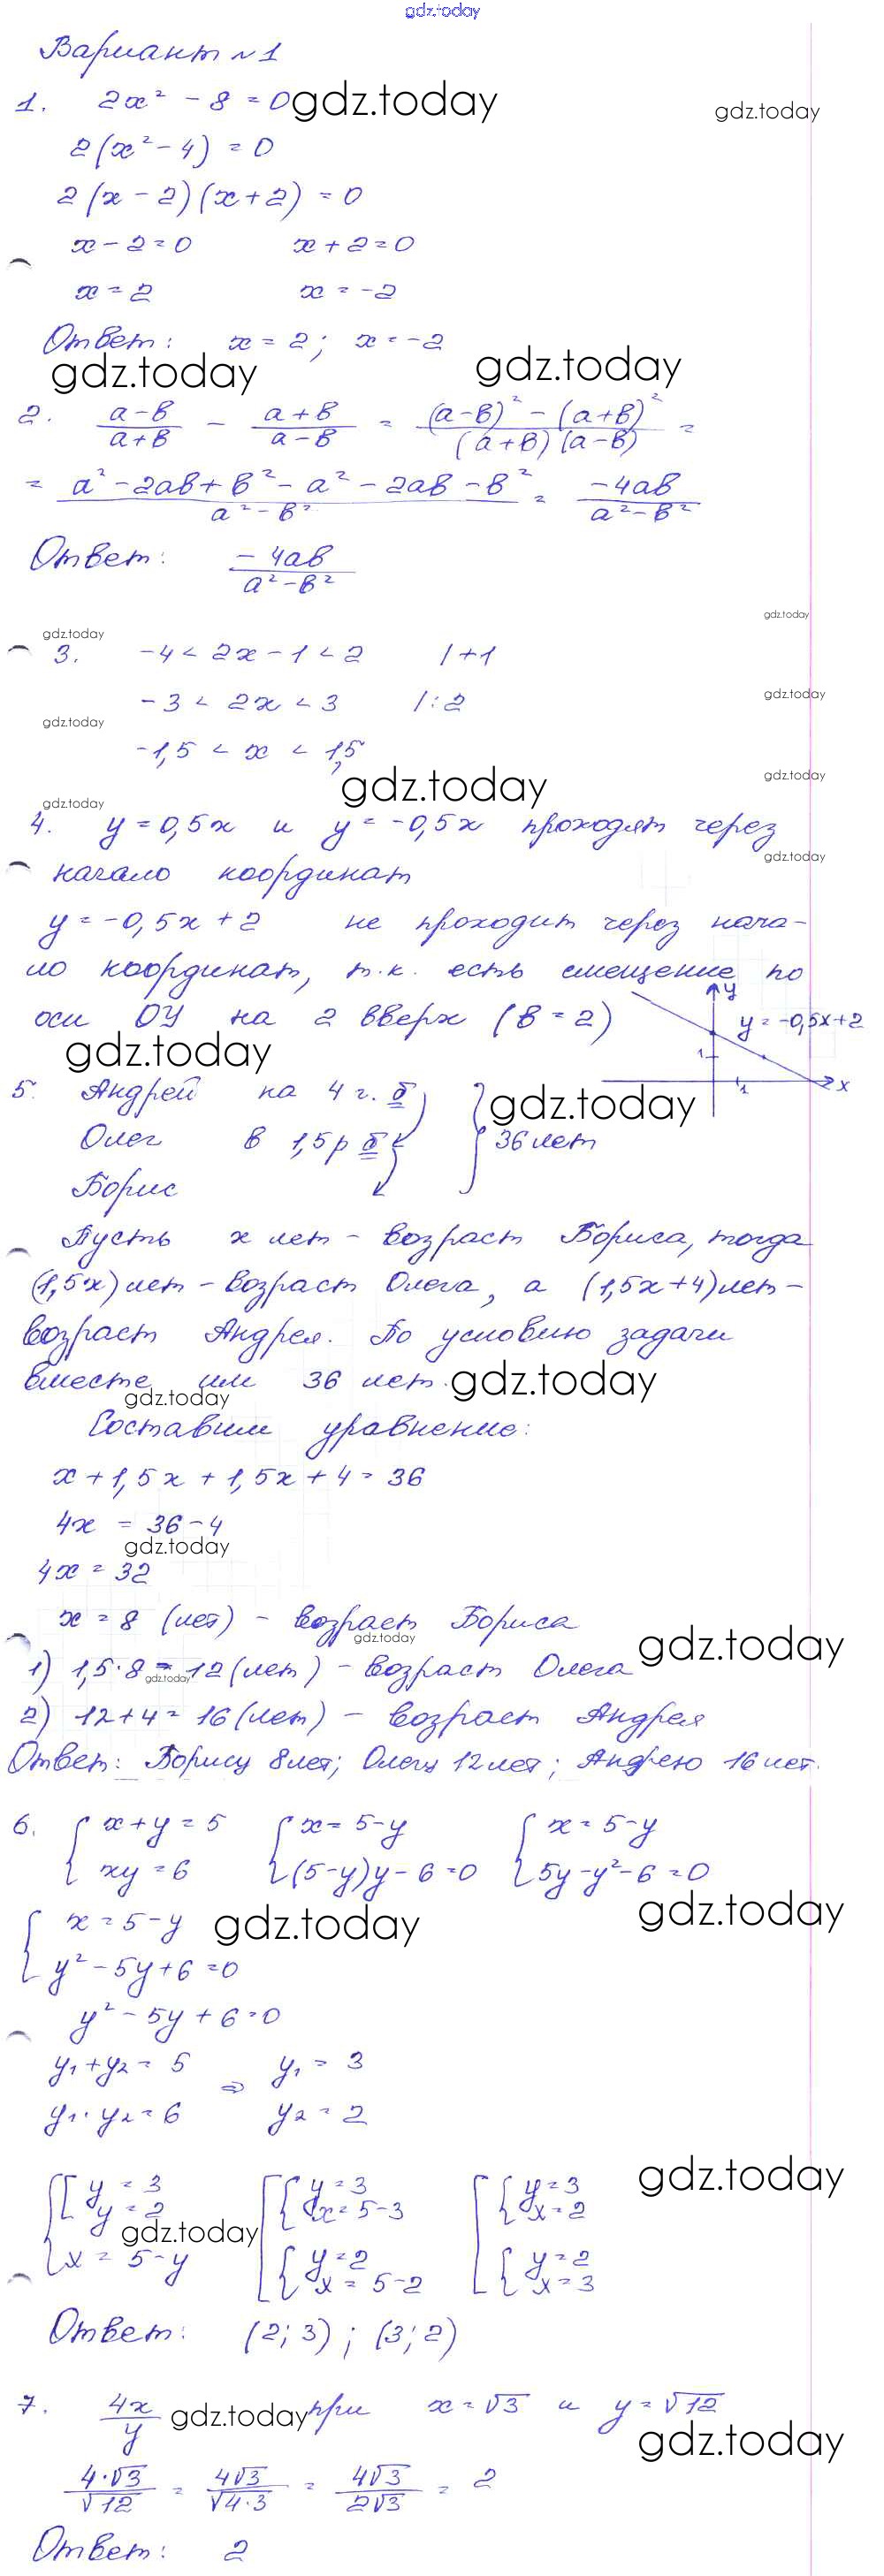 gdz.today
Вариант №1
1. 2x² - 8 = 0 gdz.today gdz.today
2(x² - 4) = 0
2(x - 2)(x + 2) = 0
x - 2 = 0 x + 2 = 0
x = 2 x = -2
Ответ: x = 2; x = -2
gdz.today gdz.today
2. (a-b)/(a+b) - (a+b)/(a-b) = ((a-b)² - (a+b)²)/((a+b)(a-b)) =
= (a² - 2ab + b² - a² - 2ab - b²)/(a² - b²) = (-4ab)/(a² - b²)
Ответ: (-4ab)/(a² - b²)
gdz.today
gdz.today
3. -4 < 2x - 1 < 2 | +1
-3 < 2x < 3 | :2 gdz.today
gdz.today
-1,5 < x < 1,5
gdz.today gdz.today
gdz.today
4. y = 0,5x и y = -0,5x проходят через
gdz.today
начало координат
y = -0,5x + 2 не проходит через нача-
ло координат, т.к. есть смещение по
оси OУ на 2 вверх (b = 2)
y
y = -0,5x+2
1
1
x
gdz.today
5. Андрей на 4 г. б gdz.today
Олег в 1,5 р б 36 лет
Борис
Пусть x лет - возраст Бориса, тогда
(1,5x) лет - возраст Олега, а (1,5x+4) лет -
возраст Андрея. По условию задачи
вместе им 36 лет. gdz.today
gdz.today
Составим уравнение:
x + 1,5x + 1,5x + 4 = 36
4x = 36 - 4
gdz.today
4x = 32
x = 8 (лет) - возраст Бориса
gdz.today gdz.today
1) 1,5·8 = 12 (лет) - возраст Олега
gdz.today
2) 12 + 4 = 16 (лет) - возраст Андрея
Ответ: Борису 8 лет; Олегу 12 лет; Андрею 16 лет.
6. { x + y = 5 { x = 5 - y { x = 5 - y
xy = 6 (5-y)y - 6 = 0 5y - y² - 6 = 0
gdz.today
{ x = 5 - y gdz.today
y² - 5y + 6 = 0
y² - 5y + 6 = 0
y₁ + y₂ = 5 ⇒ y₁ = 3
y₁ · y₂ = 6 y₂ = 2
gdz.today
{ [ y = 3 [ { y = 3 [ { y = 3
y = 2 x = 5-3 x = 2
gdz.today
x = 5 - y { y = 2 { y = 2
x = 5-2 x = 3
Ответ: (2; 3); (3; 2)
7. 4x/y gdz.today при x = √3 и y = √12
gdz.today
(4·√3)/√12 = 4√3/√(4·3) = 4√3/2√3 = 2
Ответ: 2